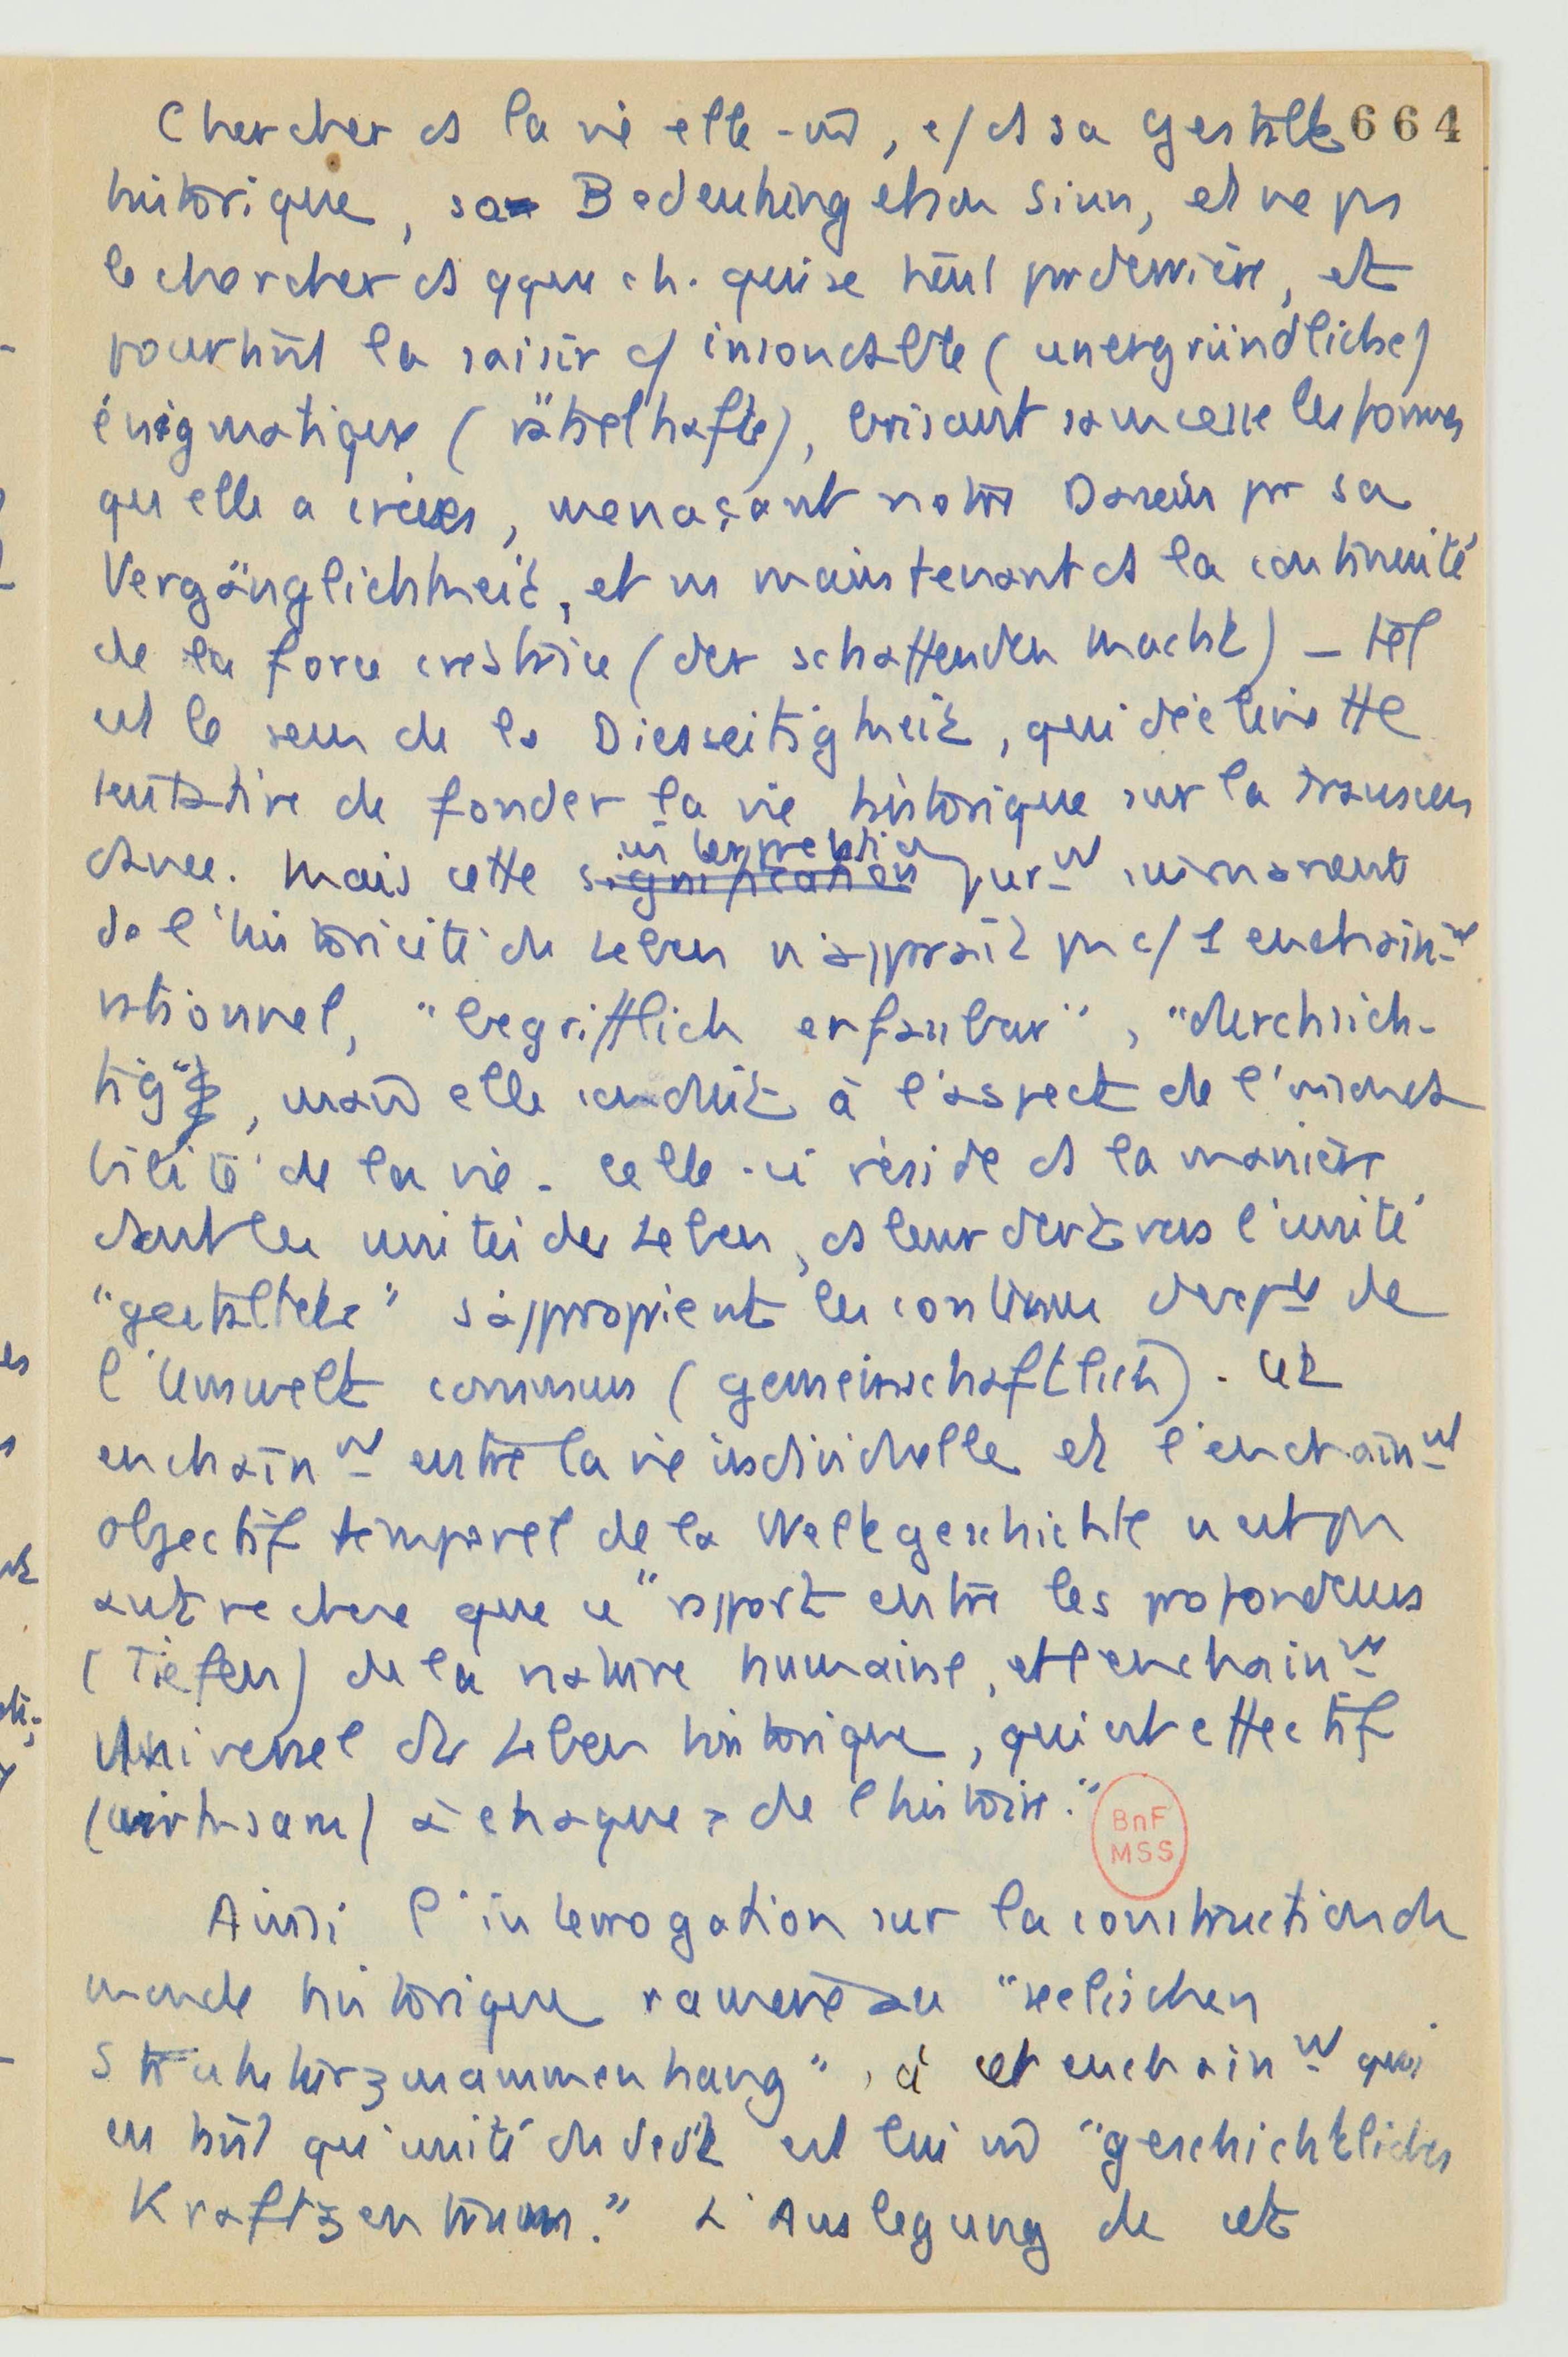 Chercher ds la vie elle-m̄, c/ ds sa Gestalt 664
historique, sa Bedeutung et son Sinn, et ne pas
le chercher ds qque ch. qui se tient par derrière, et
pourtant la saisir c/ insondable (unergründliche)
énigmatique (rätselhafte), brisant sans cesse les formes
qu'elle a créées, menaçant notre Dasein par sa
Vergänglichkeit, et ns maintenant ds la continuité
de la force créatrice (der schaffenden Macht) – tel
est le sens de la Diesseitigkeit, qui décline tte
tentative de fonder la vie historique sur la transcen
dance. Mais cette signification interprétation pur-nt immanente
de l'historicité du Leben n'apparaît pas c/ 1 enchaîn-nt
rationnel, "begrifflich erfassbar", "durchsich-
tig", mais elle conduit à l'aspect de l'insonda
bilité de la vie. Celle-ci réside ds la manière
dont les unités des Leben, ds leur dvt vers l'unité
"gestaltete" s'approprient les contenus de
l'Umwelt commun (gemeinschaftlich). Cet
enchaîn-nt entre la vie individuelle et l'enchaîn-nt
objectif temporel de la Weltgeschichte n'est pas
autre chose que ce "rapport entre les profondeurs
(Tiefen) de la nature humaine, et l'enchaîn-nt
universel du Leben historique, qui est effectif
(wirksam) à chaque de l'histoire."
BnF
MSS
Ainsi l'interrogation sur la construction du
monde historique ramène au "seelischen
Strukturzusammenhang", à cet enchaîn-nt qui
en tant qu'unité du dvt est lui m̄ "geschichtliches
Kraftzentrum." L'Auslegung de cet